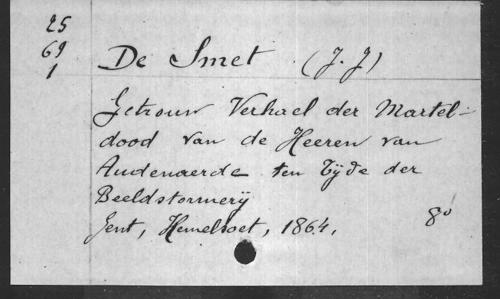 25
69
1
De Smet (J. J)
Getrouw Verhael der Martel-
dood van de Heeren van
Audenaerde ten Tyde der
Beeldstormery
Gent, Hemelsoet, 1864. 8o